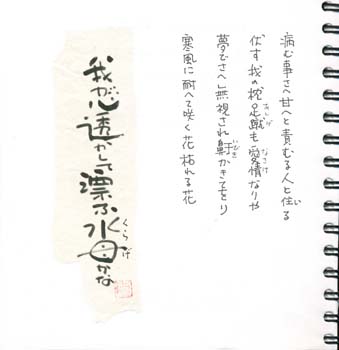 病む事さへ甘へと責むる人と住る
い
伏す我の枕足蹴も愛情なりや
あしげ
なさけ
夢でさへ無視され鼾かきをり
いびき
寒風に耐へて咲く花枯れる花
我が心透かして漂ふ水母かな
くらげ